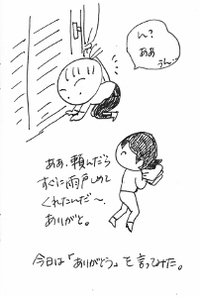 ん?
ああ
うん…
ああ、頼んだら
すぐに雨戸しめて
くれたんだ〜
ありがと。
今日は「ありがとう」を言ってみた。